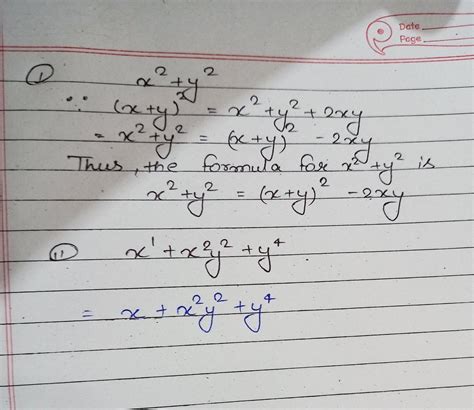 Date
Page
(i) x² + y²
∵ (x+y)² = x² + y² + 2xy
= x² + y² = (x+y)² - 2xy
Thus, the formula for x² + y² is
x² + y² = (x+y)² - 2xy
(ii) x¹ + x²y² + y⁴
= x + x²y² + y⁴